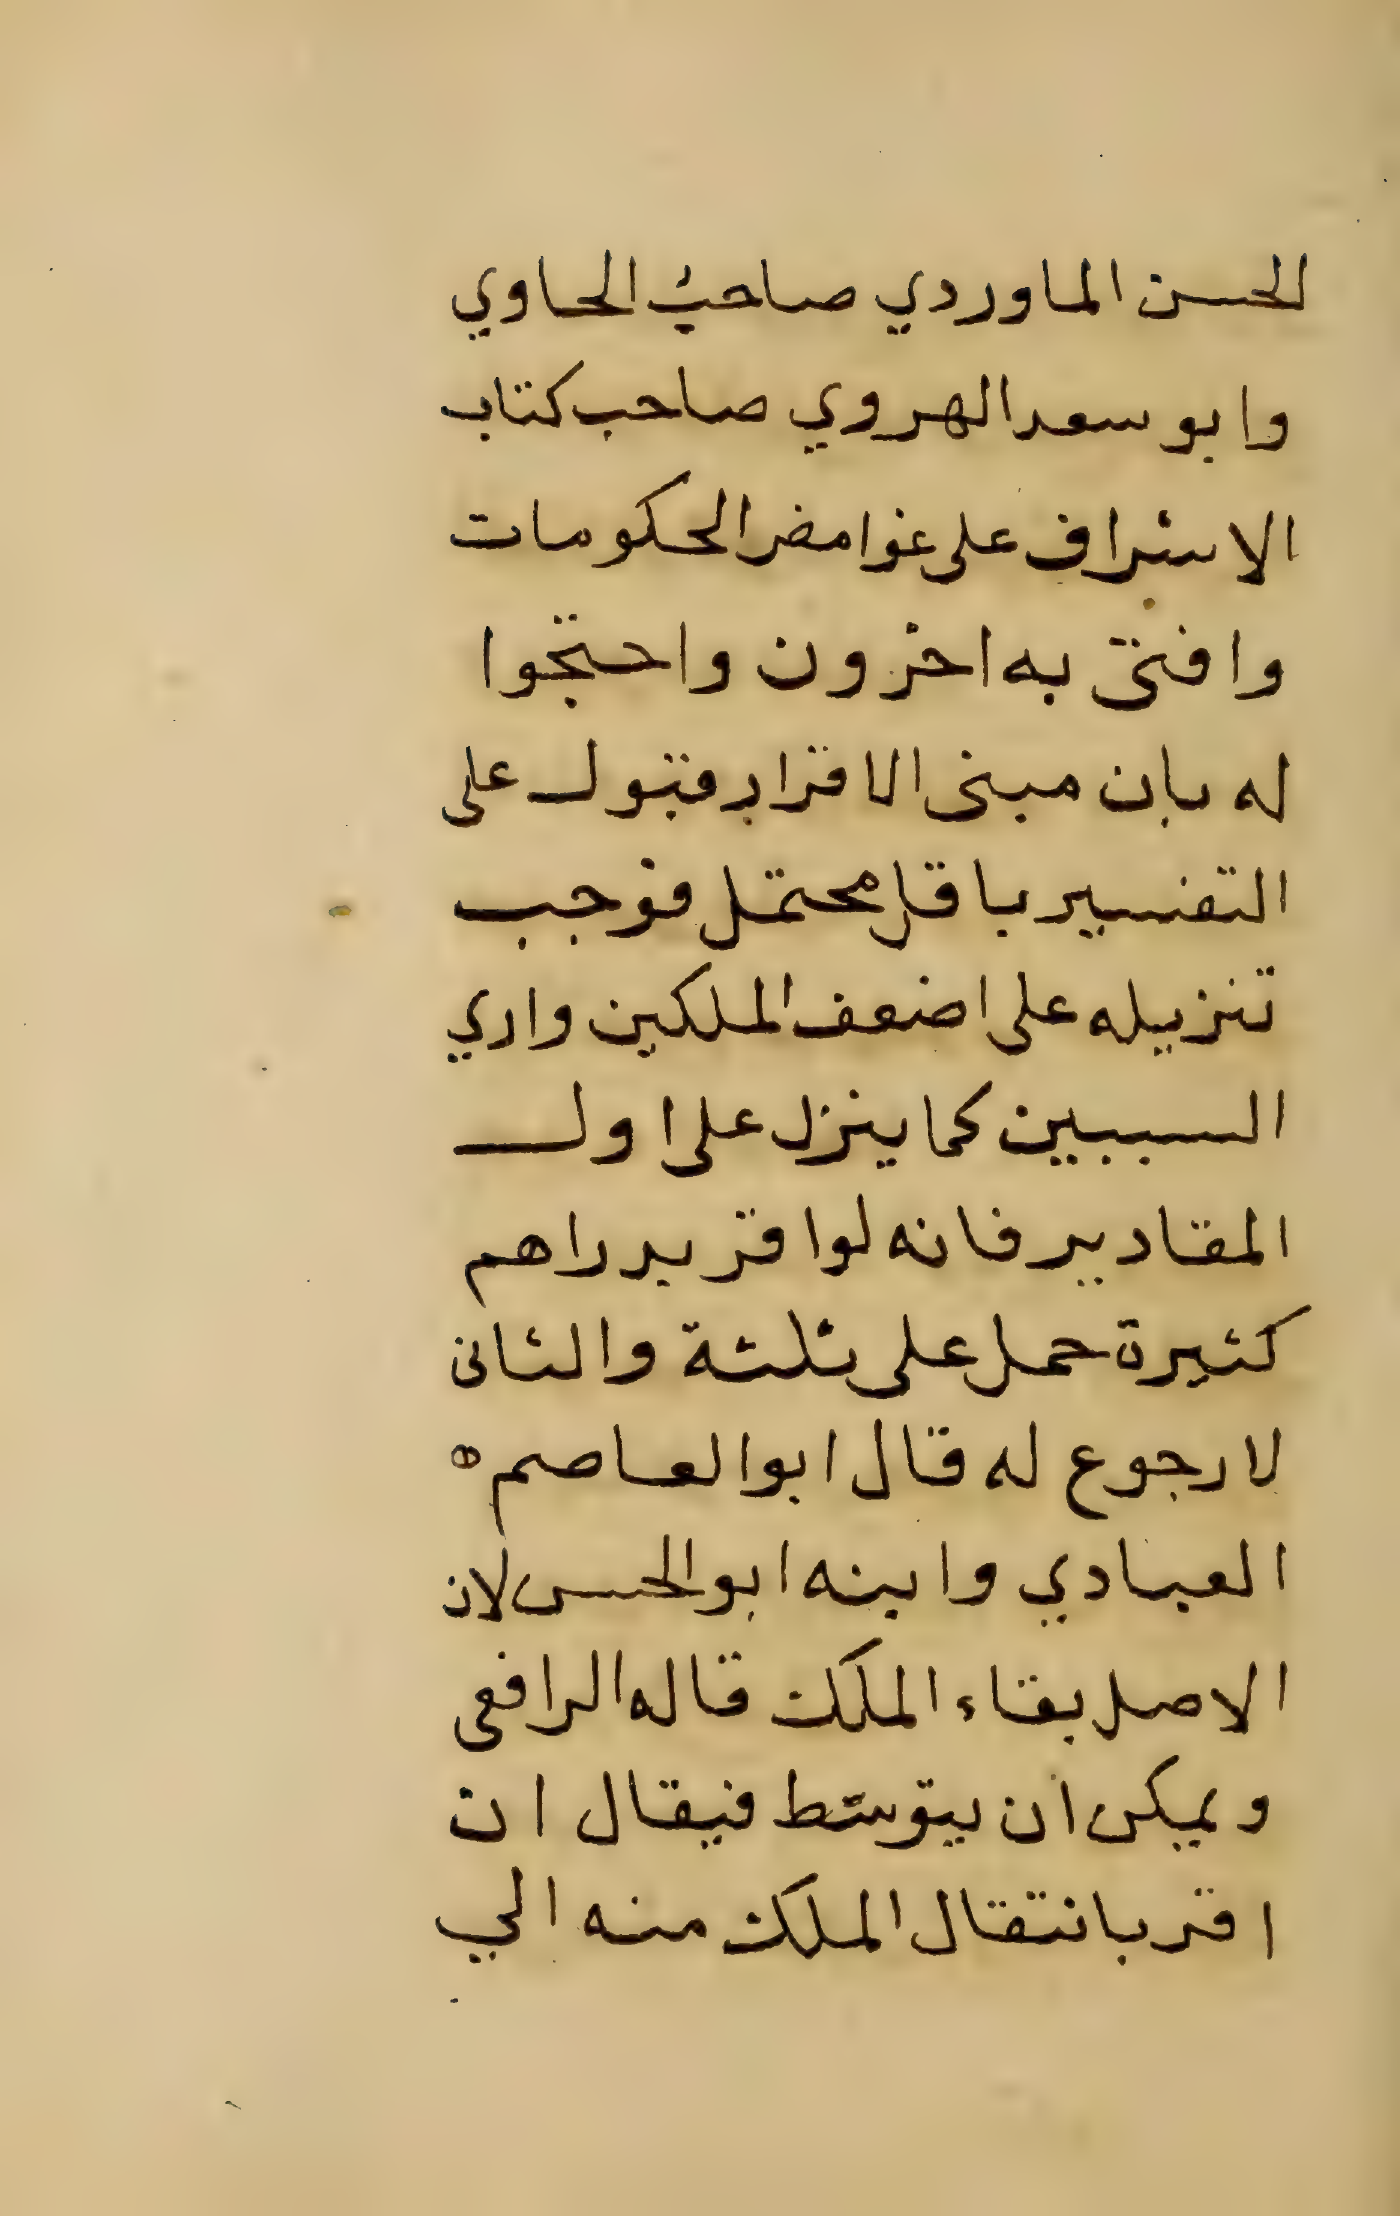 الحسن الماوردي صاحب الحاوي
وابو سعد الهروي صاحب كتاب
الاشراف على غوامض الحكومات
وافتى به اخرون واحتجوا
له بان مبنى الاقرار فنبول على
التفسير باقل محتمل فوجب
تنزيله على اضعف الملكين وادي
السببين كما ينزل على اول
المقادير فانه لو اقر بدراهم
كثيرة حمل على ثلثة والثانى
لا رجوع له قال ابو العاصم ه
العبادي وابنه ابو الحسن لان
الاصل بقاء الملك قاله الرافعى
ويمكن ان يتوسط فيقال ان
اقر بانتقال الملك منه الي